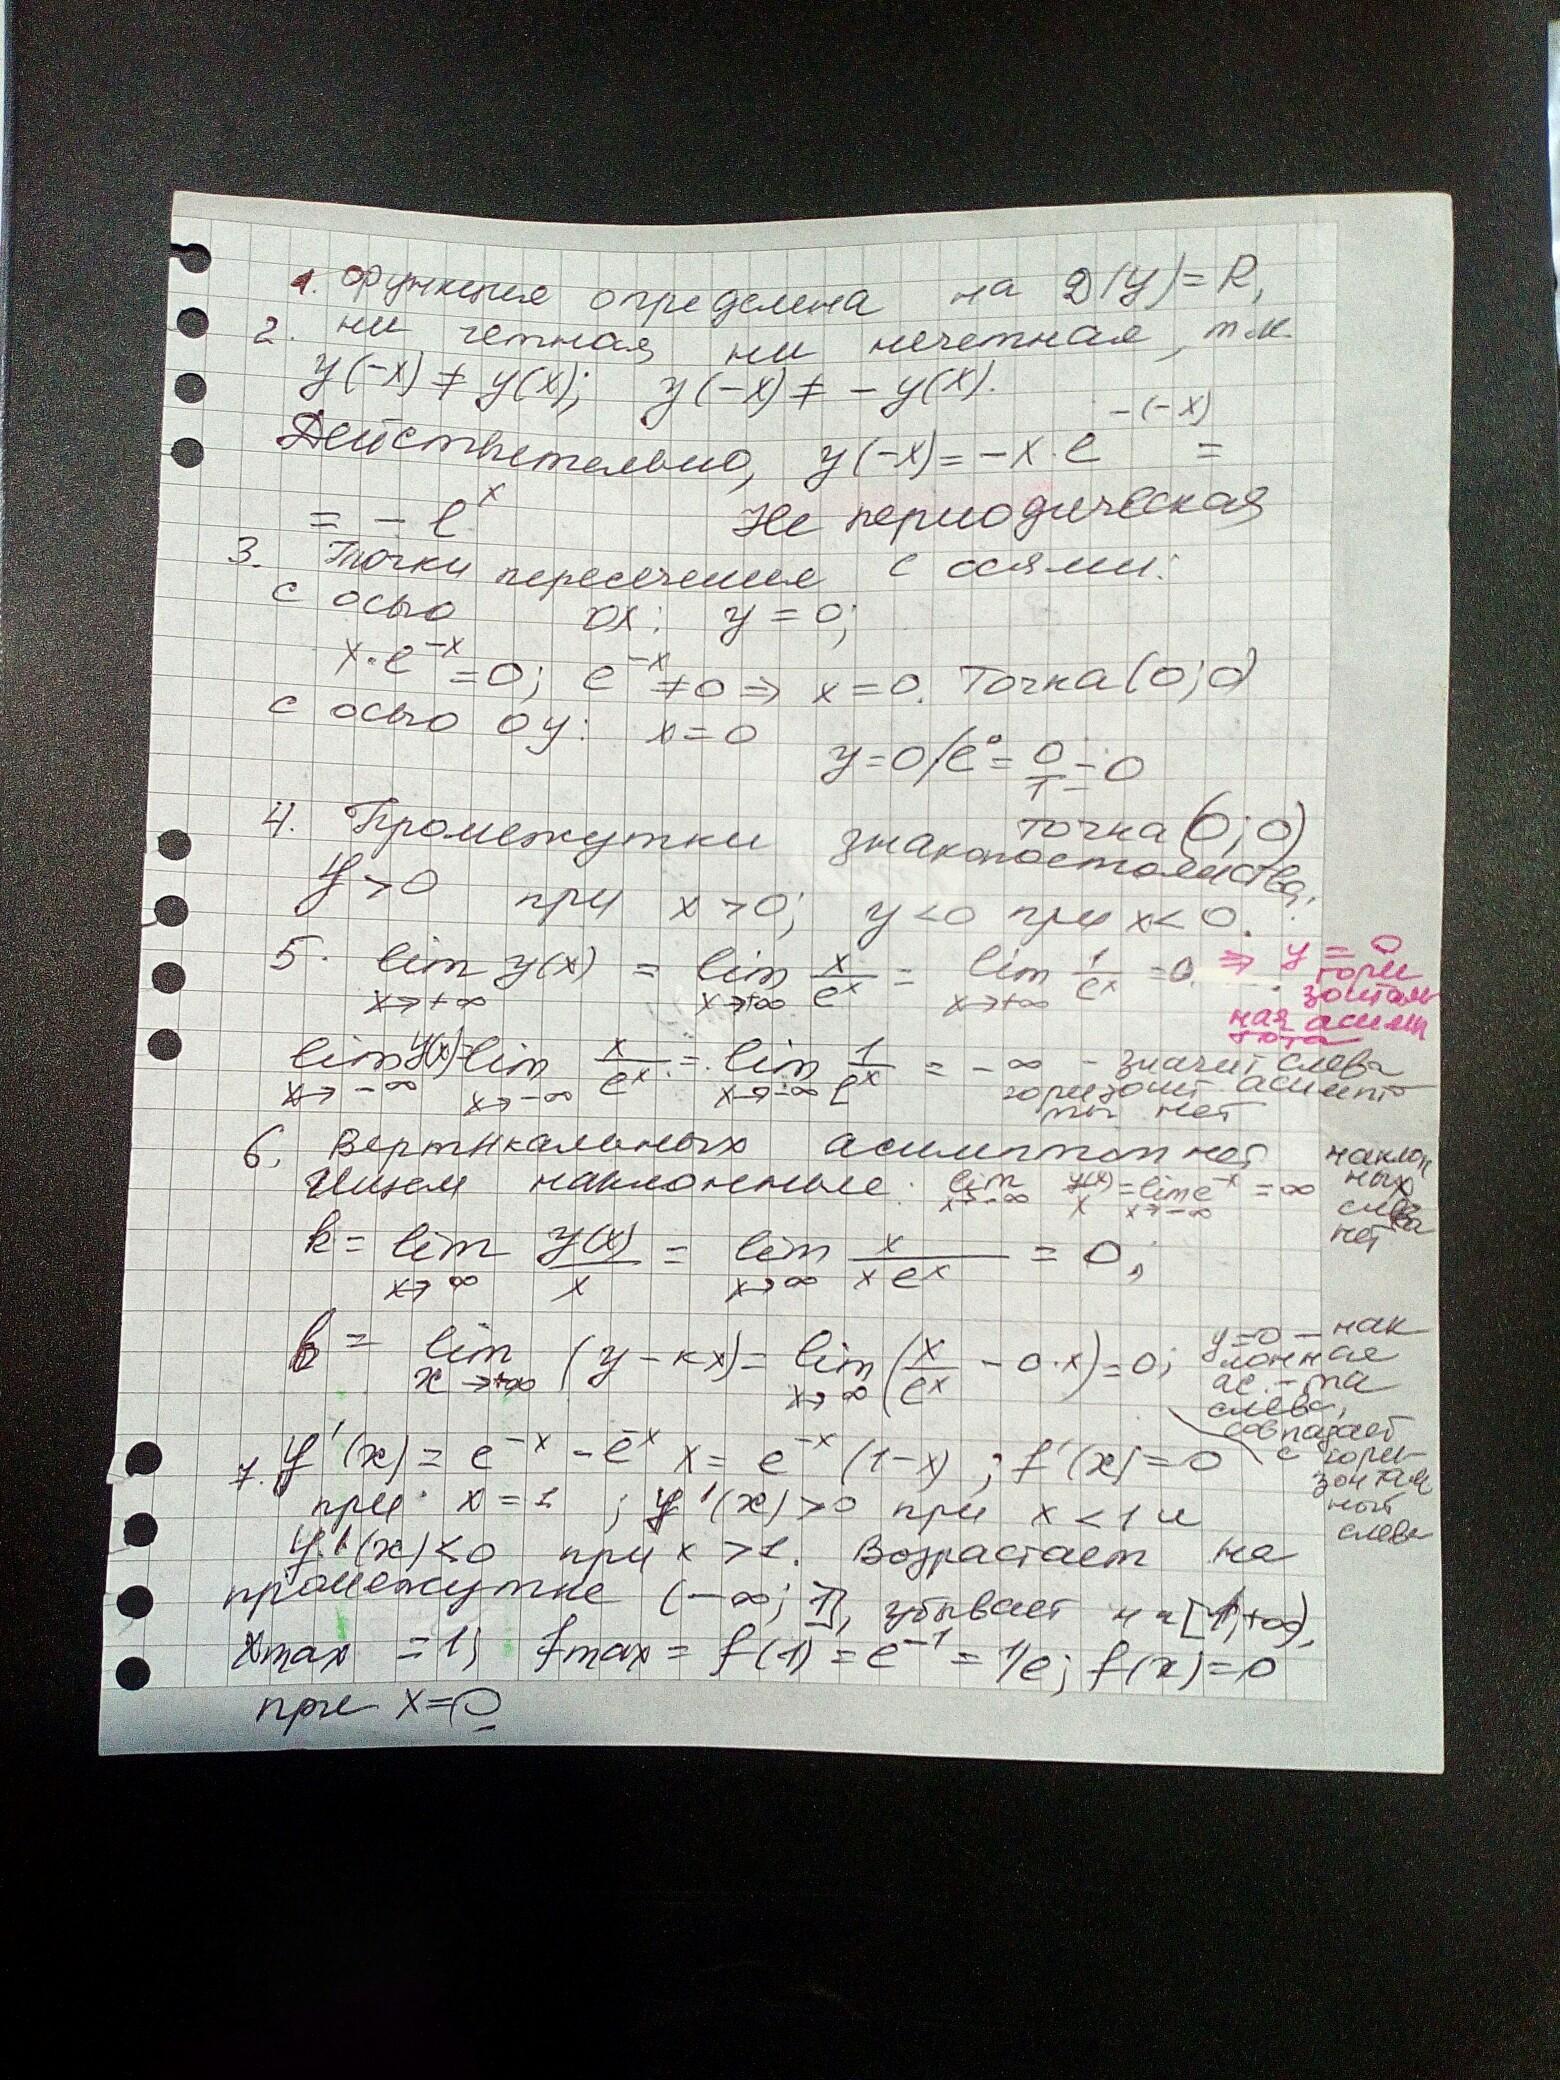 1. Функция определена на D(y)=R,
2. ни четная, ни нечетная, т.к.
y(-x) ≠ y(x); y(-x) ≠ - y(x).
Действительно, y(-x) = -x · e^{-(-x)} =
= - e^x Не периодическая
3. Точки пересечения с осями:
с осью ох: y = 0;
x·e^{-x} = 0; e^{-x} ≠ 0 ⇒ x = 0. Точка (0;0)
с осью оу: x = 0
y = 0/e^0 = 0/1 = 0
точка (0;0)
4. Промежутки знакопостоянства:
y > 0 при x > 0; y < 0 при x < 0.
5. lim_{x→+∞} y(x) = lim_{x→+∞} x/e^x = lim_{x→+∞} 1/e^x = 0 ⇒ y = 0
гори
зонталь
ная асимп
тота
lim_{x→-∞} y(x) = lim_{x→-∞} x/e^x = lim_{x→-∞} 1/e^x = -∞ - значит слева
горизонт асимпто
ты нет
6. Вертикальных асимптот нет
Ищем наклонные: lim_{x→-∞} y(x)/x = lim_{x→-∞} e^{-x} = ∞
наклон
ных
слева
нет
k = lim_{x→∞} y(x)/x = lim_{x→∞} x/(x e^x) = 0;
b = lim_{x→+∞} (y - kx) = lim_{x→∞} (x/e^x - 0·x) = 0;
y=0 - нак
лонная
ас.-та
слева,
совпадает
с гори-
зонталь
ной
слева
7. y'(x) = e^{-x} - e^{-x} x = e^{-x} (1-x); f'(x) = 0
при x = 1; y'(x) > 0 при x < 1 и
y'(x) < 0 при x > 1. Возрастает на
промежутке (-∞; 1], убывает на [1;+∞),
x max = 1; f max = f(1) = e^{-1} = 1/e; f(x) = 0
при x = 0